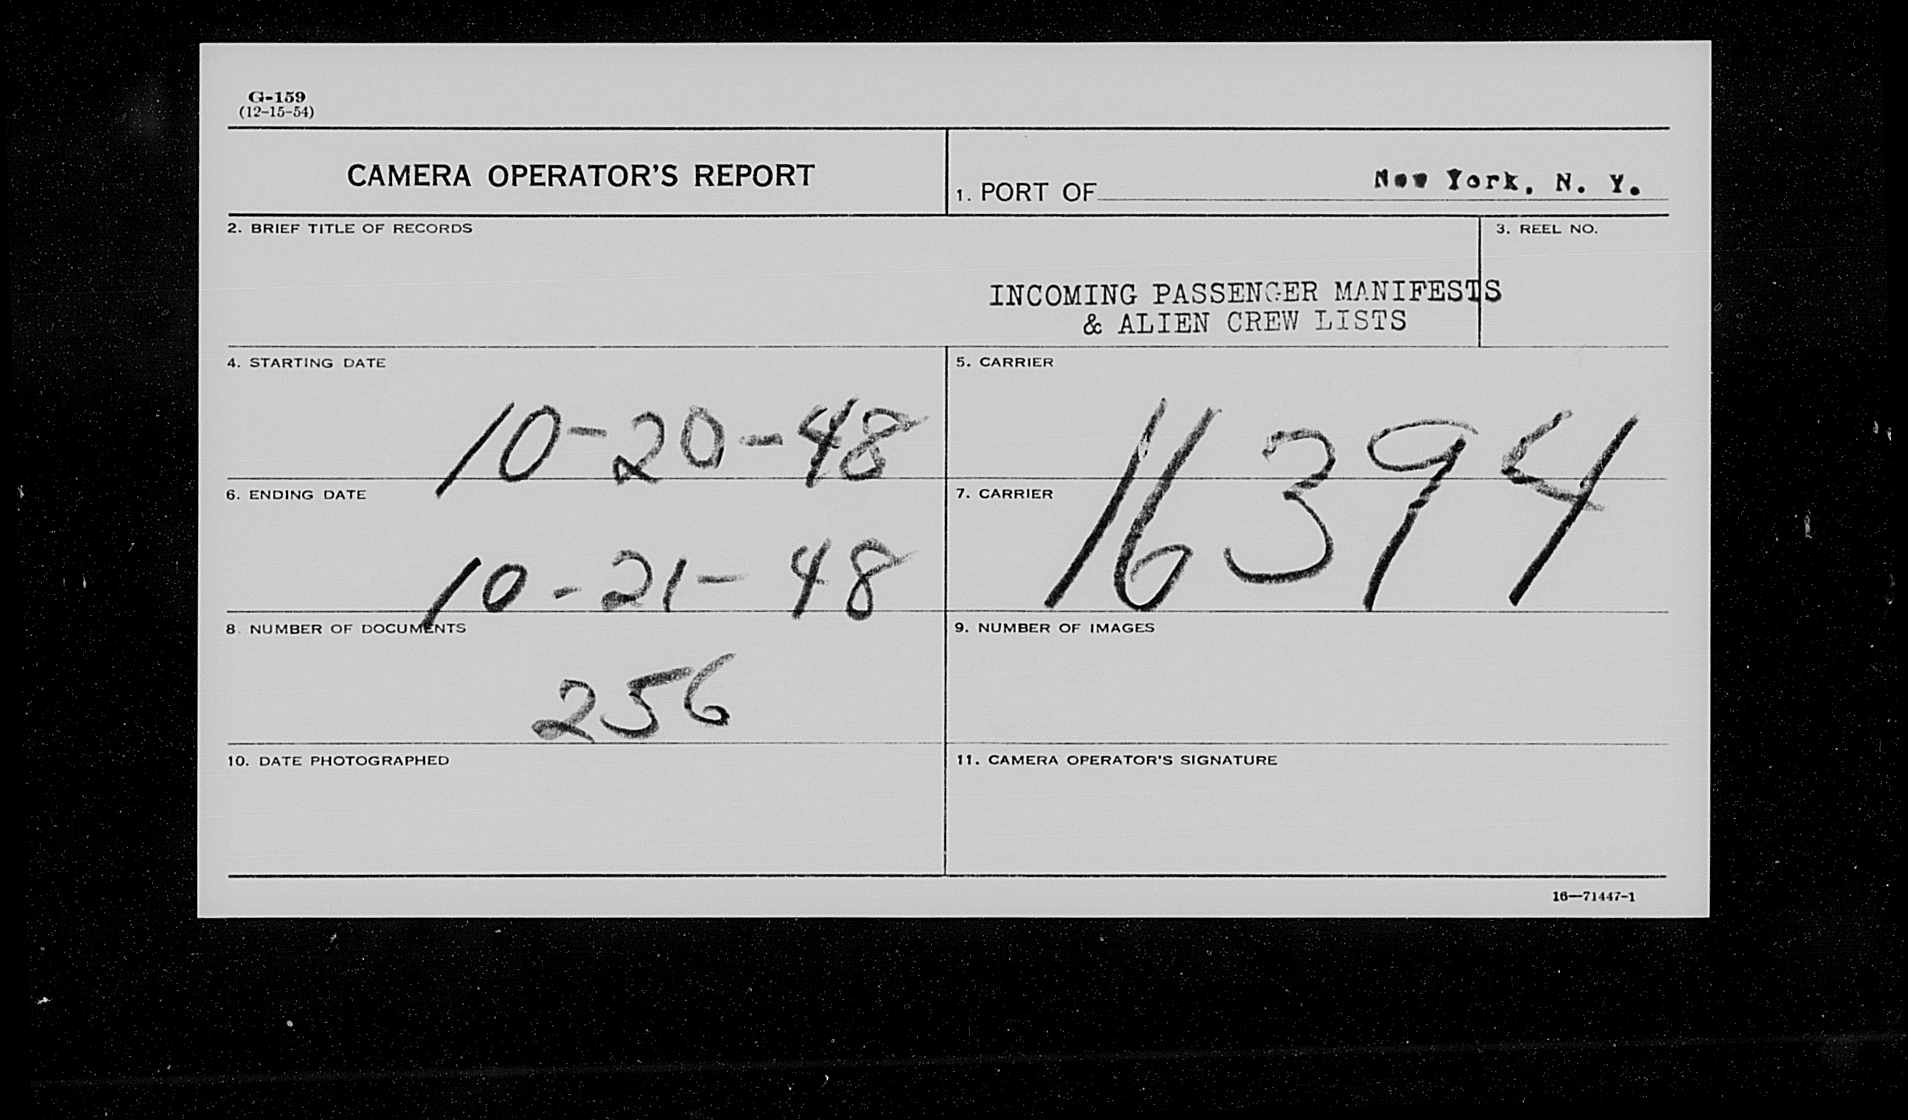 G-159
(12-15-54)
CAMERA OPERATOR'S REPORT
1. PORT OF New York, N. Y.
2. BRIEF TITLE OF RECORDS
3. REEL NO.
INCOMING PASSENGER MANIFESTS
& ALIEN CREW LISTS
4. STARTING DATE
10-20-48
5. CARRIER
16394
6. ENDING DATE
10-21-48
7. CARRIER
8. NUMBER OF DOCUMENTS
256
9. NUMBER OF IMAGES
10. DATE PHOTOGRAPHED
11. CAMERA OPERATOR'S SIGNATURE
16—71447-1